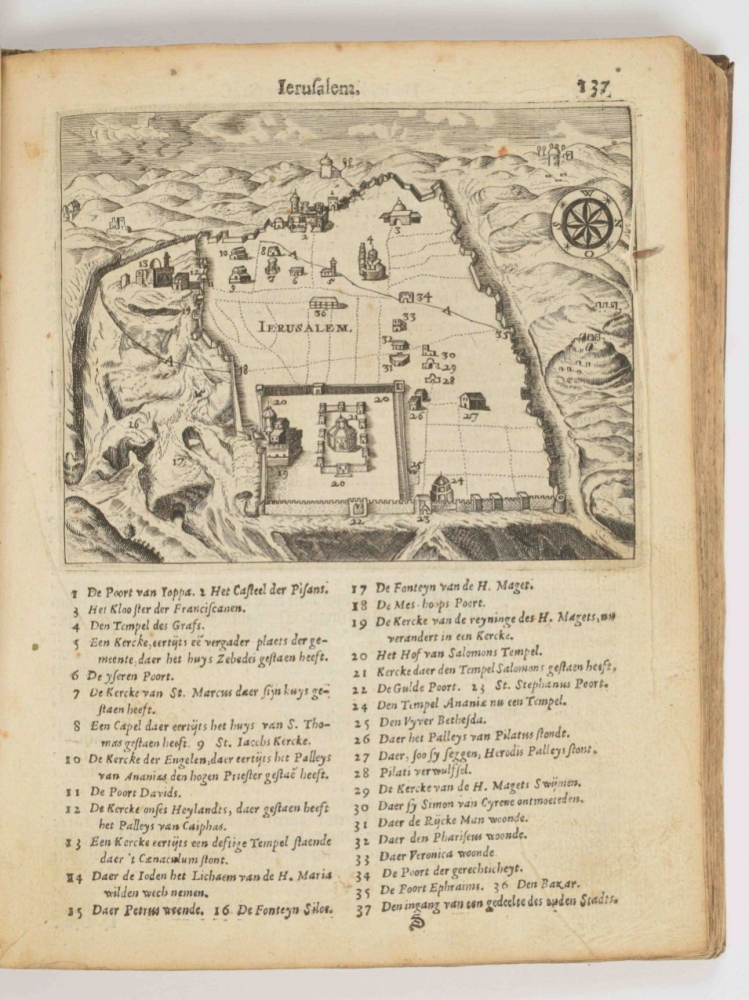 Ierusalem.
137
W
S
N
O
1
2
3
4
10
8
A
9
7
6
5
13
12
34
36
33
A
IERUSALEM.
35
32
30
31
29
28
A
18
20
20
21
26
27
16
17
19
25
24
20
22
23
1 De Poort van Ioppa. 2 Het Casteel der Pisans.
3 Het Klooster der Franciscanen.
4 Den Tempel des Grafs.
5 Een Kercke, eertijts eē vergader plaets der ge-
meente, daer het huys Zebedei gestaen heeft.
6 De yseren Poort.
7 De Kercke van St. Marcus daer sijn huys ge-
staen heeft.
8 Een Capel daer eertijts het huys van S. Tho-
mas gestaen heeft. 9 St. Iacobs Kercke.
10 De Kercke der Engelen, daer eertijts het Palleys
van Ananias den hogen Priester gestaē heeft.
11 De Poort Davids.
12 De Kercke onses Heylandts, daer gestaen heeft
het Palleys van Caiphas.
13 Een Kercke eertijts een deftige Tempel staende
daer 't Cænaculum stont.
14 Daer de Ioden het Lichaem van de H. Maria
wilden wech nemen.
15 Daer Petrus weende. 16 De Fonteyn Siloe.
17 De Fonteyn van de H. Maget.
18 De Mes-hoops Poort.
19 De Kercke van de reyninge des H. Magets, nu
verandert in een Kercke.
20 Het Hof van Salomons Tempel.
21 Kercke daer den Tempel Salomons gestaen heeft.
22 De Gulde Poort. 23 St. Stephanus Poort.
24 Den Tempel Ananiæ nu een Tempel.
25 Den Vyver Bethesda.
26 Daer het Palleys van Pilatus stondt.
27 Daer, soo sy seggen, Herodis Palleys stont.
28 Pilati verwulfsel.
29 De Kercke van de H. Magets Swijmen.
30 Daer sy Simon van Cyrene ontmoeteden.
31 Daer de Rijcke Man woonde.
32 Daer den Phariseus woonde.
33 Daer Veronica woonde
34 De Poort der gerechticheyt.
35 De Poort Ephraims. 36 Den Bazar.
37 Den ingang van een gedeelte des ouden Stadts.